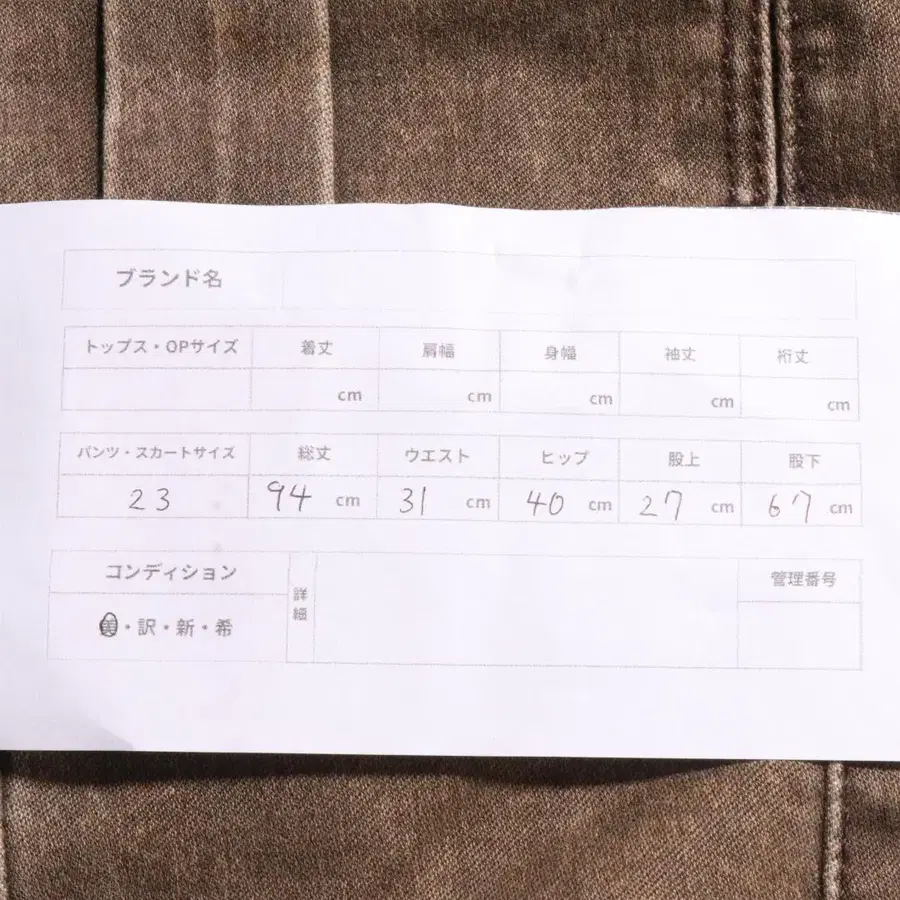 ブランド名
トップス・OPサイズ 着丈 肩幅 身幅 袖丈 裄丈
cm cm cm cm cm
パンツ・スカートサイズ 総丈 ウエスト ヒップ 股上 股下
23 94 cm 31 cm 40 cm 27 cm 67 cm
コンディション 詳細 管理番号
美・訳・新・希